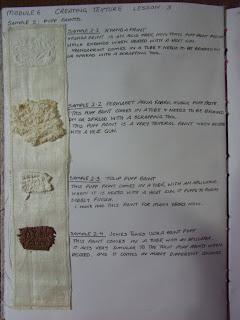 MODULE 6 CREATING TEXTURE LESSON 3
SAMPLE 2: PUFF PAINTS
SAMPLE 2-1 XPANDAPRINT
XPANDAPRINT IS AN ACID FREE, NON TOXIC PUFF PAINT
WHICH EXPANDS WHEN HEATED WITH A HEAT GUN.
XPANDAPRINT COMES IN A TUB & NEEDS TO BE BRUSHED ON
OR SPREAD WITH A SCRAPPING TOOL.
SAMPLE 2-2 FABRIC PUFF PASTE
THIS PUFF PAINT COMES IN A TUB & NEEDS TO BE BRUSHED
ON OR SPREAD WITH A SCRAPPING TOOL.
THIS PUFF PAINT IS A VERY TEXTURAL PAINT WHEN HEATED
WITH A HEAT GUN.
SAMPLE 2-3 TULIP PUFF PAINT
THIS PUFF PAINT COMES IN A TUBE, WITH AN APPLICATOR.
WHEN IT IS HEATED WITH A HEAT GUN IT PUFFS TO FORM
I HAVE HAD THIS PAINT FOR MANY YEARS NOW.
SAMPLE 2-4 JONES TONES PUFF PAINT
THIS PAINT COMES IN A TUBE WITH AN APPLICATOR.
IT ACTS VERY SIMILAR TO THE TULIP PUFF PAINTS WHEN
HEATED, AND IT COMES IN MANY DIFFERENT COLOURS.